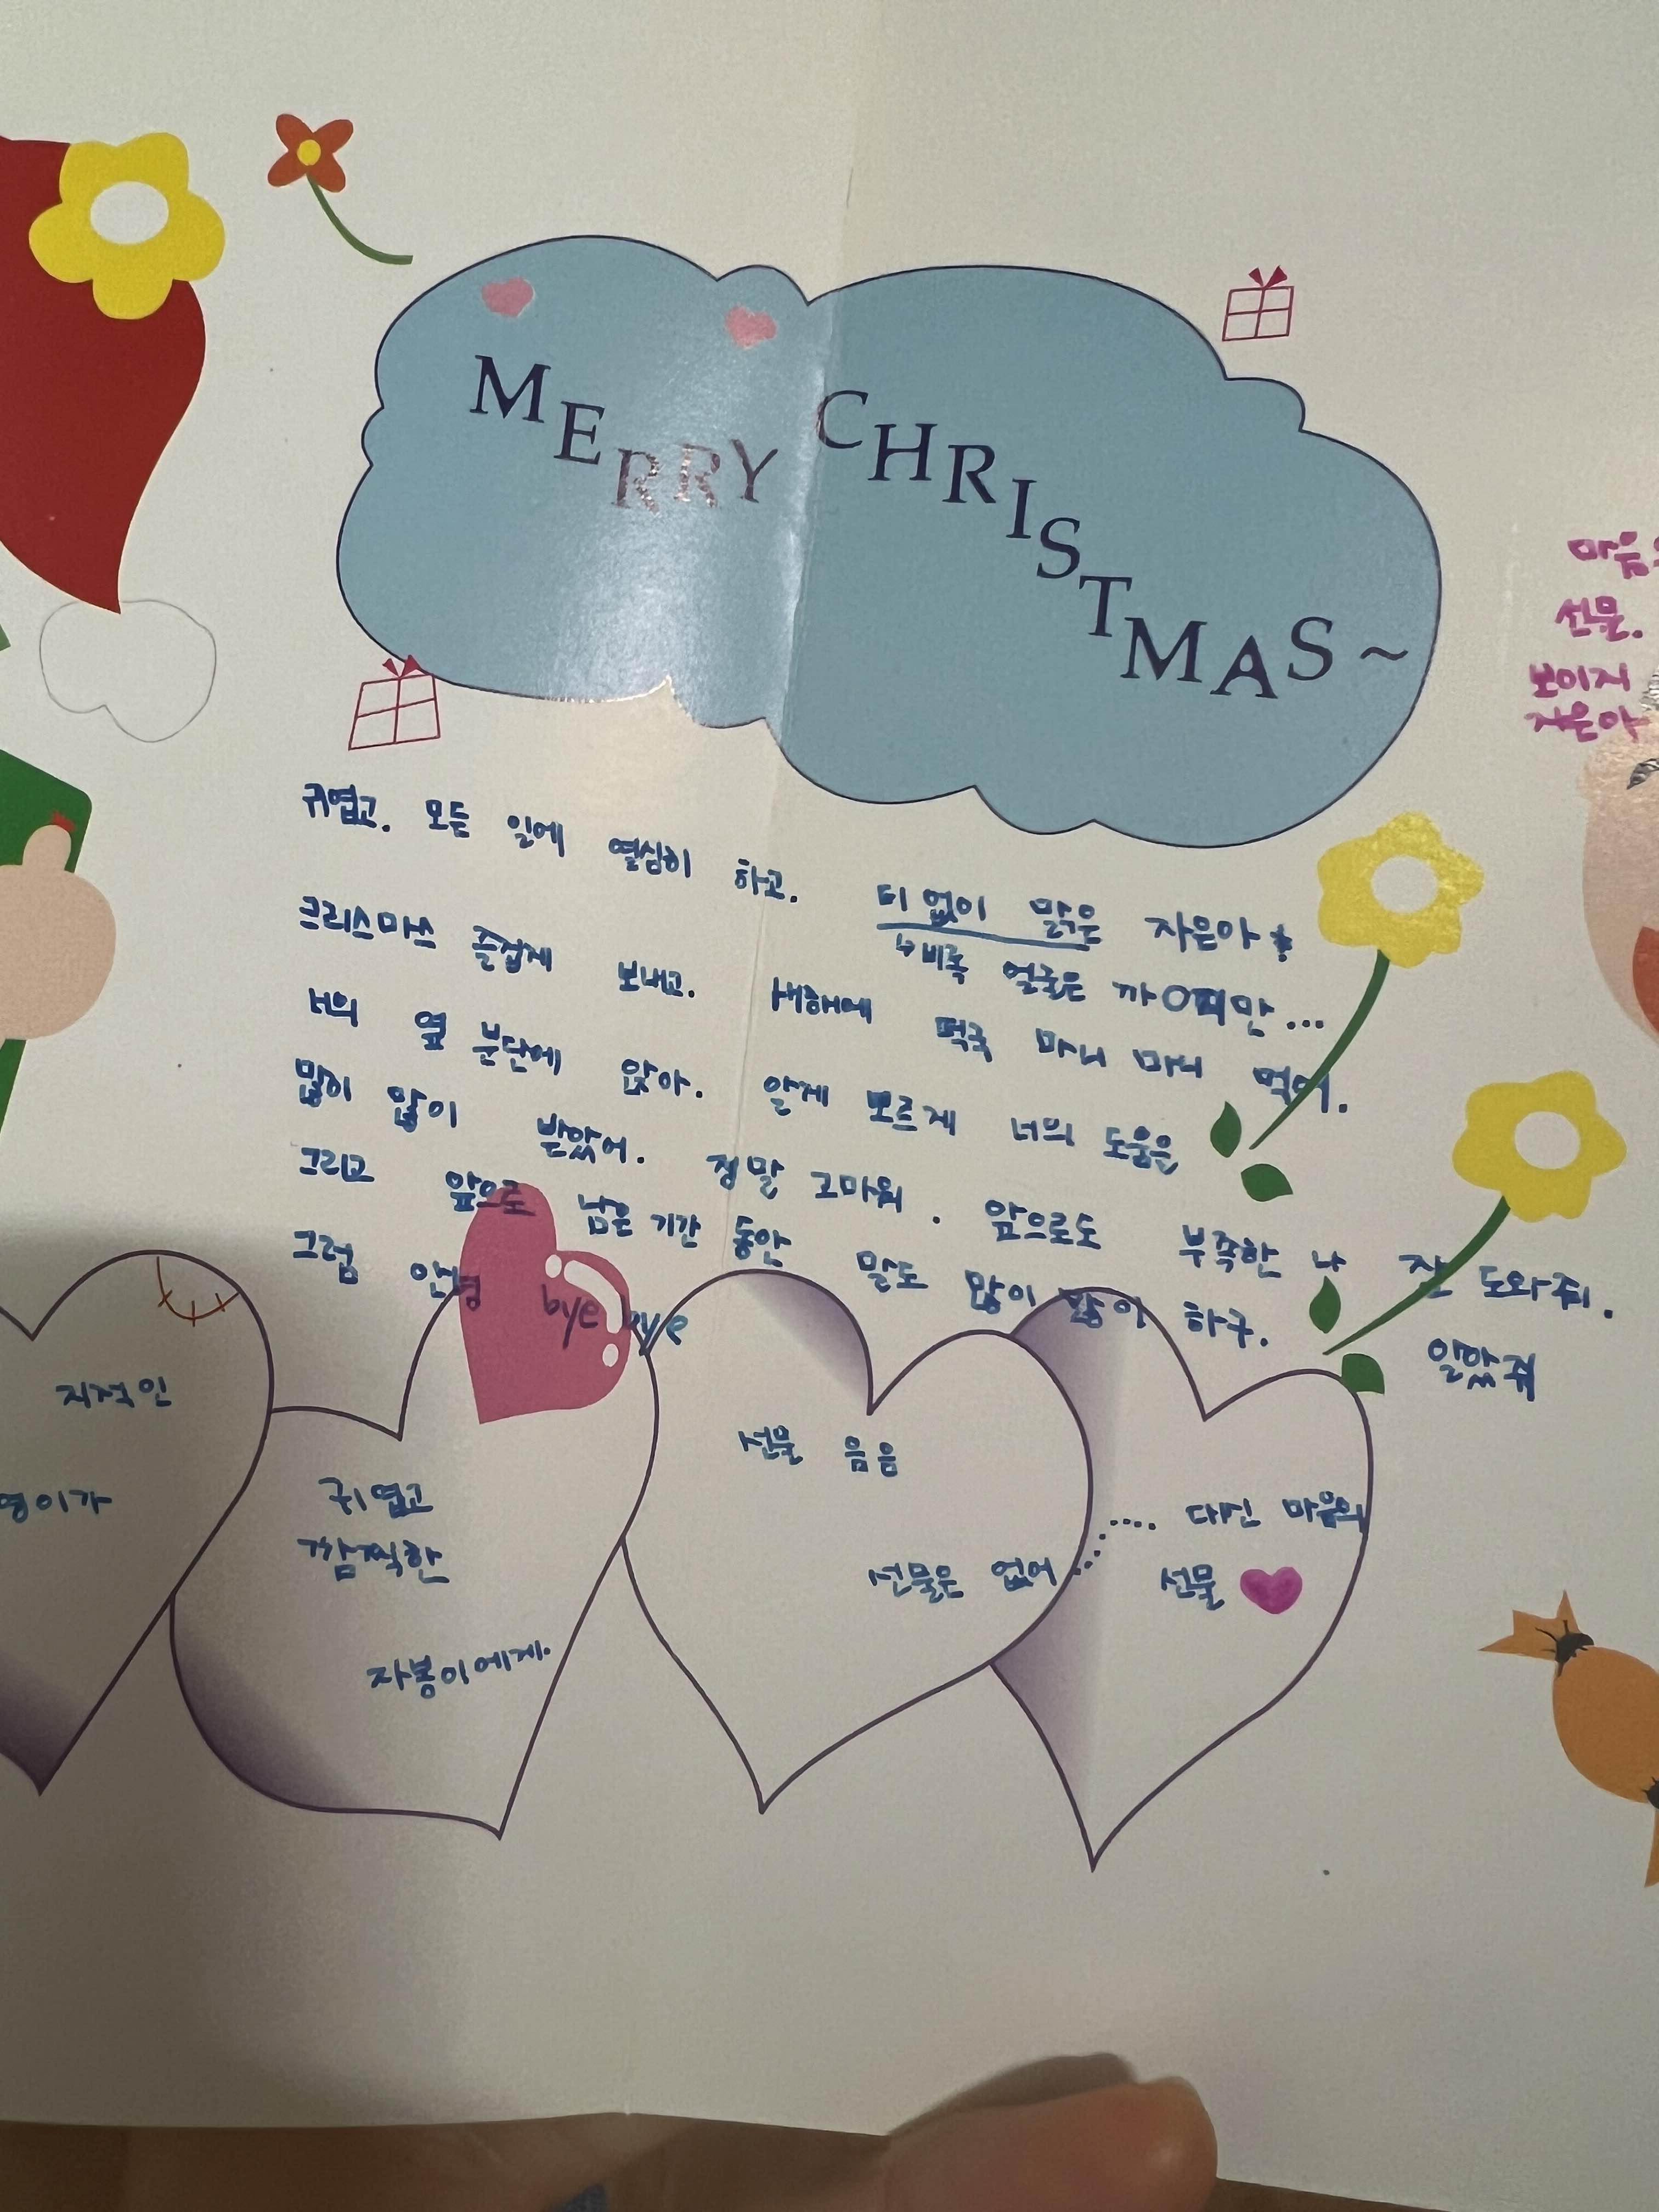 MERRY CHRISTMAS ~
귀엽고. 모든 일에 열심히 하고. 티 없이 맑은 자은아!
↳비록 얼굴은
크리스마스 즐겁게 보내고. 새해에 떡국 마니 마니 먹어.
너의 옆 분단에 앉아. 알게 모르게 너의 도움을
많이 많이 받았어. 정말 고마워. 앞으로도 부족한 나 잘 도와줘.
그리고 앞으로 남은 기간 동안 말도 많이 많이 하구. 알았줘
그럼 안녕 bye bye
지적인
영이가
귀엽고
깜찍한
자봉이에게.
선물 음음
선물은 없어
.... 대신 마음의
선물
선물.
보이지
자은아